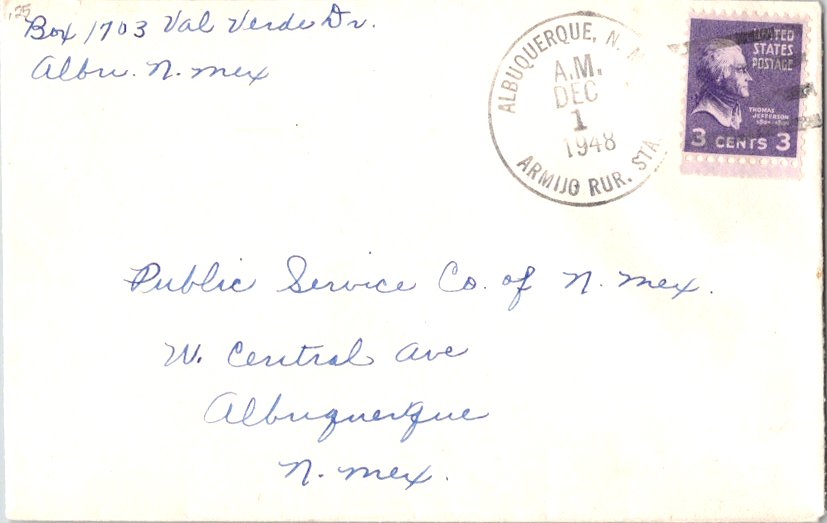 .25
Box 1703 Val Verde Dr.
Albu. N. Mex
ALBUQUERQUE, N. M
A.M.
DEC
1
1948
ARMIJO RUR. STA.
UNITED
STATES
POSTAGE
THOMAS
JEFFERSON
3 CENTS 3
Public Service Co. of N. Mex.
W. Central Ave
Albuquerque
N. Mex.